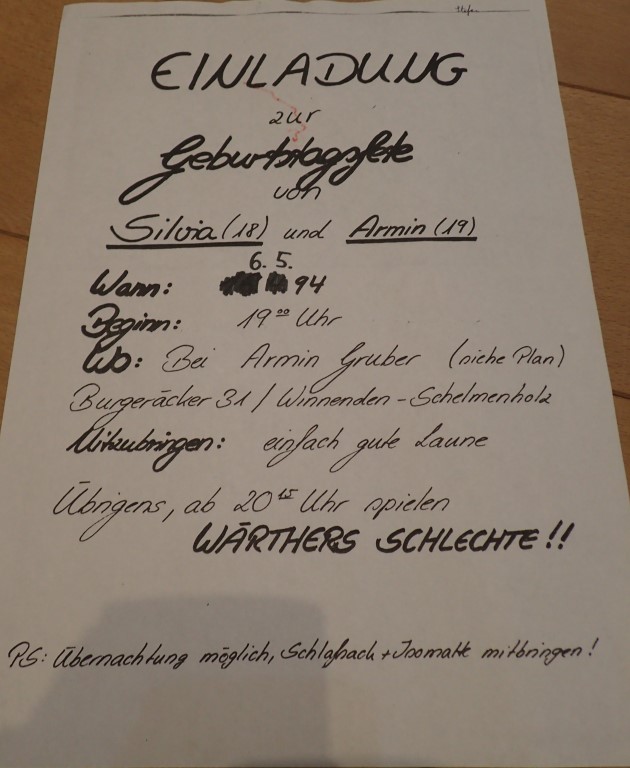 EINLADUNG
zur
Geburtstagsfete
von
Silvia (18) und Armin (19)
6. 5.
Wann: 94
Beginn: 19⁰⁰ Uhr
Wo: Bei Armin Gruber (siehe Plan)
Burgeräcker 31 / Winnenden - Schelmenholz
Mitzubringen: einfach gute Laune
Übrigens, ab 20¹⁵ Uhr spielen
WÄRTHERS SCHLECHTE!!
PS: Übernachtung möglich, Schlafsack + Isomatte mitbringen!